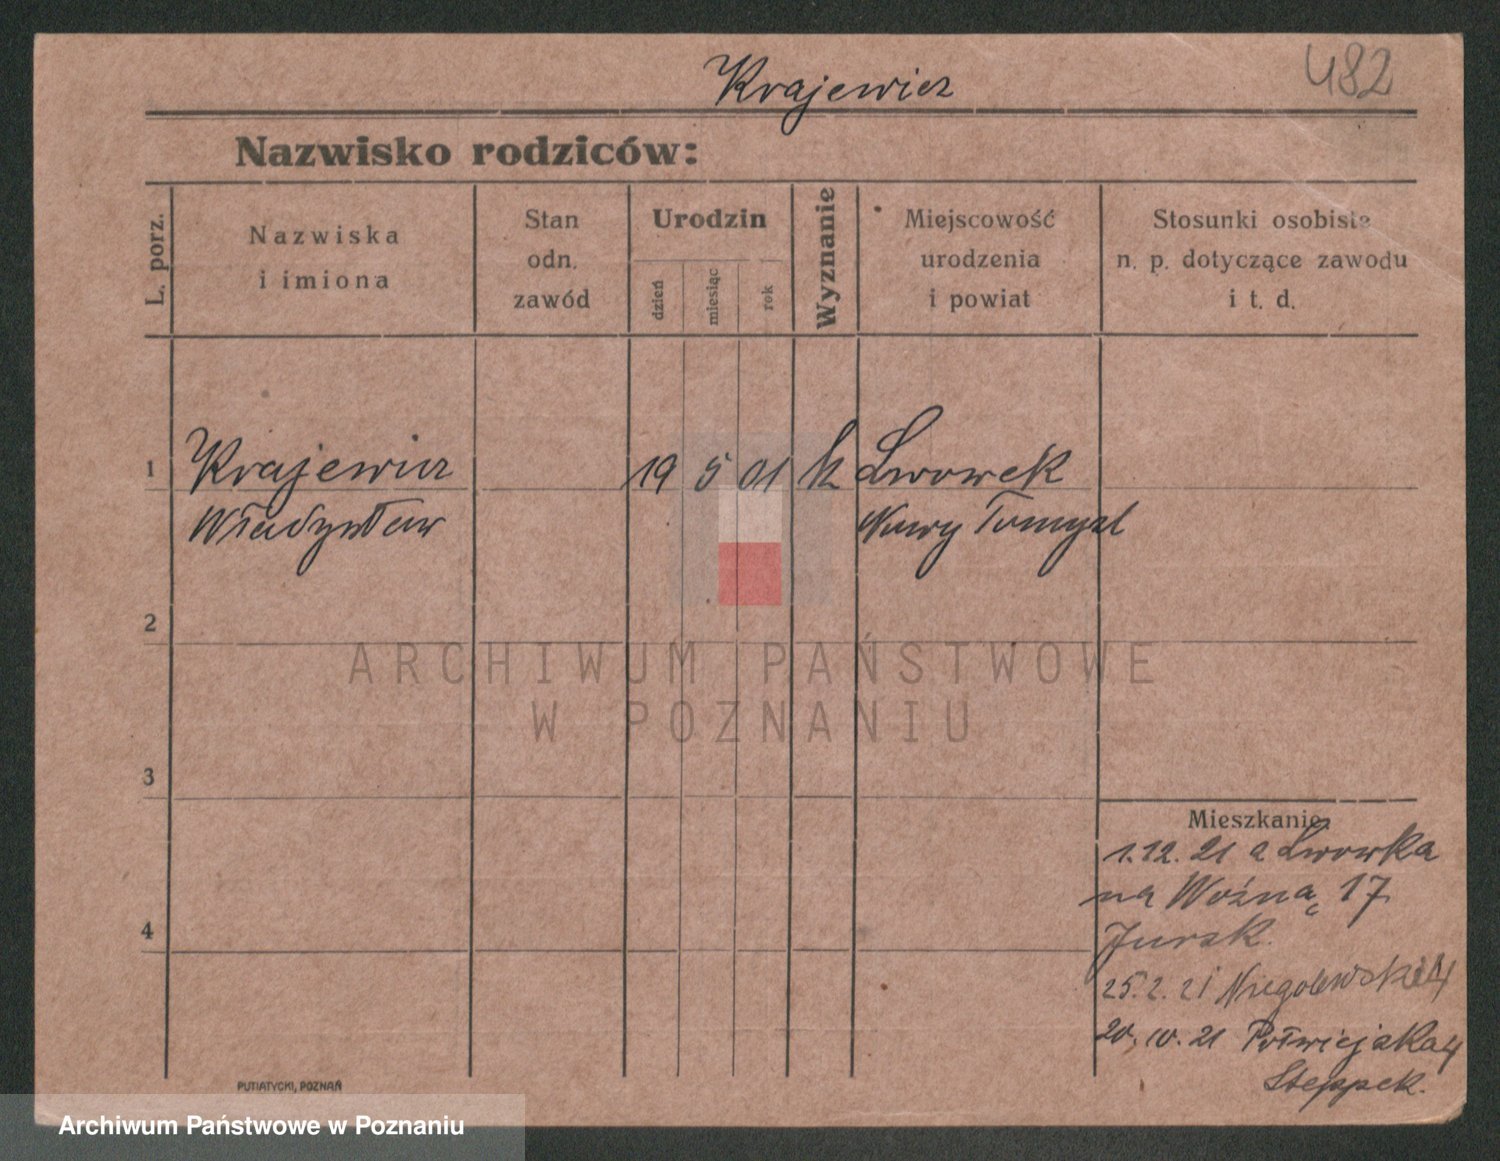 Krajewicz
482
Nazwisko rodziców:
L. porz.
Nazwiska
i imiona
Stan
odn.
zawód
Urodzin
dzień
miesiąc
rok
Wyznanie
Miejscowość
urodzenia
i powiat
Stosunki osobiste
n. p. dotyczące zawodu
i t. d.
1
Krajewicz
Władysław
19 5 01
k
Lwowek
Nowy Tomyśl
2
ARCHIWUM PAŃSTWOWE
W POZNANIU
3
4
Mieszkanie
1.12.21 a Lwowka
na Woźną 17
Jursk.
25.2.21 Niegolewskich
20.10.21 Półwiejska 4
Steppek.
PUTIATYCKI, POZNAŃ
Archiwum Państwowe w Poznaniu